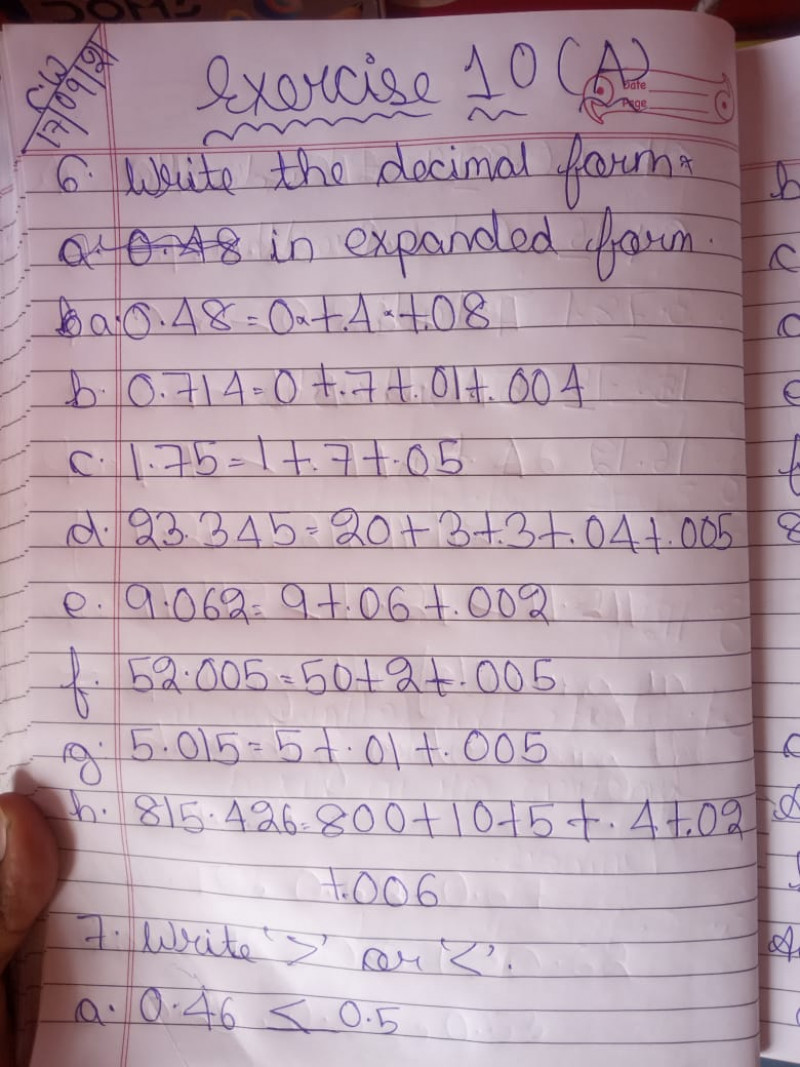 C.W
17/09/21
Exercise 10 (A)
Date
Page
6. Write the decimal form
a. 0.48 in expanded form.
a. 0.48 = 0 + .4 + .08
b. 0.714 = 0 + .7 + .01 + .004
c. 1.75 = 1 + .7 + .05
d. 23.345 = 20 + 3 + .3 + .04 + .005
e. 9.062 = 9 + .06 + .002
f. 52.005 = 50 + 2 + .005
g. 5.015 = 5 + .01 + .005
h. 815.426 = 800 + 10 + 5 + .4 + .02
+ .006
7. Write '>' or '<'.
a. 0.46 < 0.5